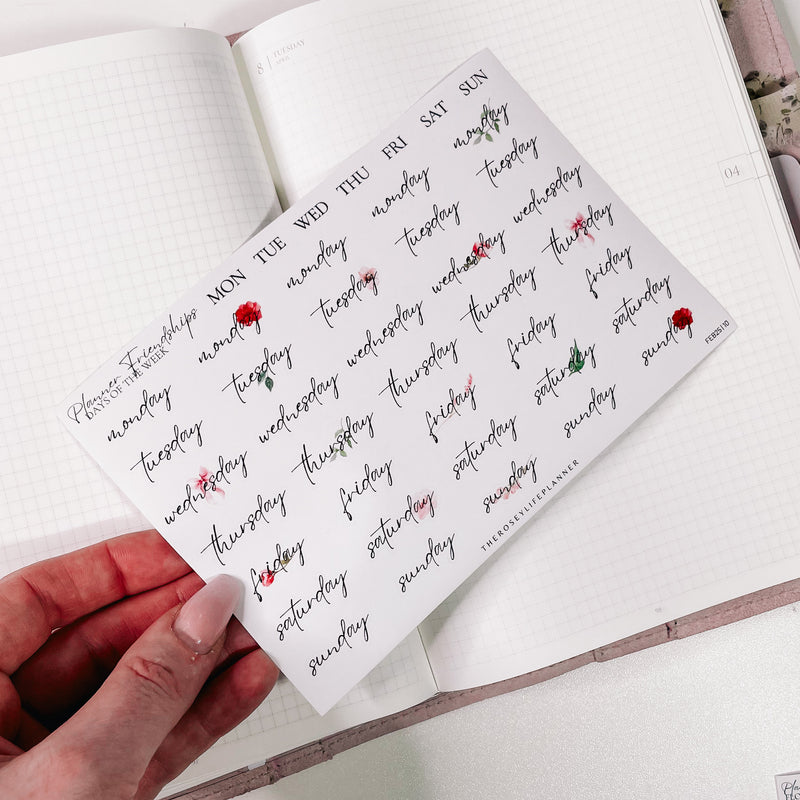 8 TUESDAY
APRIL
04
Planner Friendships
DAYS OF THE WEEK
MON TUE WED THU FRI SAT SUN
monday monday monday monday monday
tuesday tuesday tuesday tuesday tuesday
wednesday wednesday wednesday wednesday wednesday
thursday thursday thursday thursday thursday
friday friday friday friday friday
saturday saturday saturday saturday saturday
sunday sunday sunday sunday sunday
THEROSEYLIFEPLANNER
FEB25110